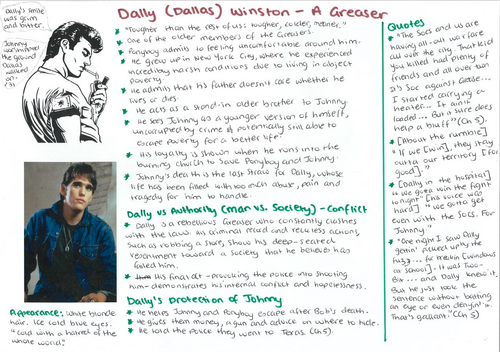 Dally (Dallas) Winston - A Greaser
Dally's smile
was grim
and bitter.
Johnny
worshipped
the ground
Dallas
walked
on.
• "Tougher than the rest of us: tougher, colder, meaner."
• One of the older members of the Greasers.
• Ponyboy admits to feeling uncomfortable around him.
• He grew up in New York City, where he experienced
incredibly harsh conditions due to living in abject
poverty.
• He admits that his father doesn't care whether he
lives or dies.
• He acts as a stand-in older brother to Johnny.
• He sees Johnny as a younger version of himself,
uncorrupted by crime & potentially still able to
escape poverty for a better life.
• His loyalty is shown when he runs into the
burning church to save Ponyboy and Johnny.
• Johnny's death is the last straw for Dally, whose
life has been filled with too much abuse, pain and
tragedy for him to handle.
Dally vs Authority (man vs. Society) - Conflict
• Dally is a rebellious Greaser who constantly clashes
with the law. His criminal record and reckless actions,
such as robbing a store, show his deep-seated
resentment toward a society that he believes has
failed him.
• His final act - provoking the police into shooting
him - demonstrates his internal conflict and hopelessness.
Dally's Protection of Johnny
• He helps Johnny and Ponyboy escape after Bob's death.
• He gives them money, a gun and advice on where to hide.
• He told the police they went to Texas. (Ch5).
Appearance: White blonde
hair. Ice cold blue eyes.
"cold with a hatred of the
whole world."
Quotes
• "The Socs and us are
having all-out warfare
all over the city. That kid
you killed had plenty of
friends and all over town
it's Soc against Grease...
I started carrying a
heater... It ain't
loaded... But it sure does
help a bluff" (Ch 5).
• [About the rumble]
"If we [win], they stay
outta our territory [for
good]."
• [Dally in the hospital]
"we gotta win the fight
tonight" [his voice was
hard] "we gotta get
even with the Socs. For
Johnny"
• "One night I saw Dally
gettin' picked up by the
fuzz... for breakin' [windows
at school]. It was Two-
Bit... and Dally knew it.
But he just took the
sentence without batting
an eye or even denyin' it.
That's gallant." (Ch 5)